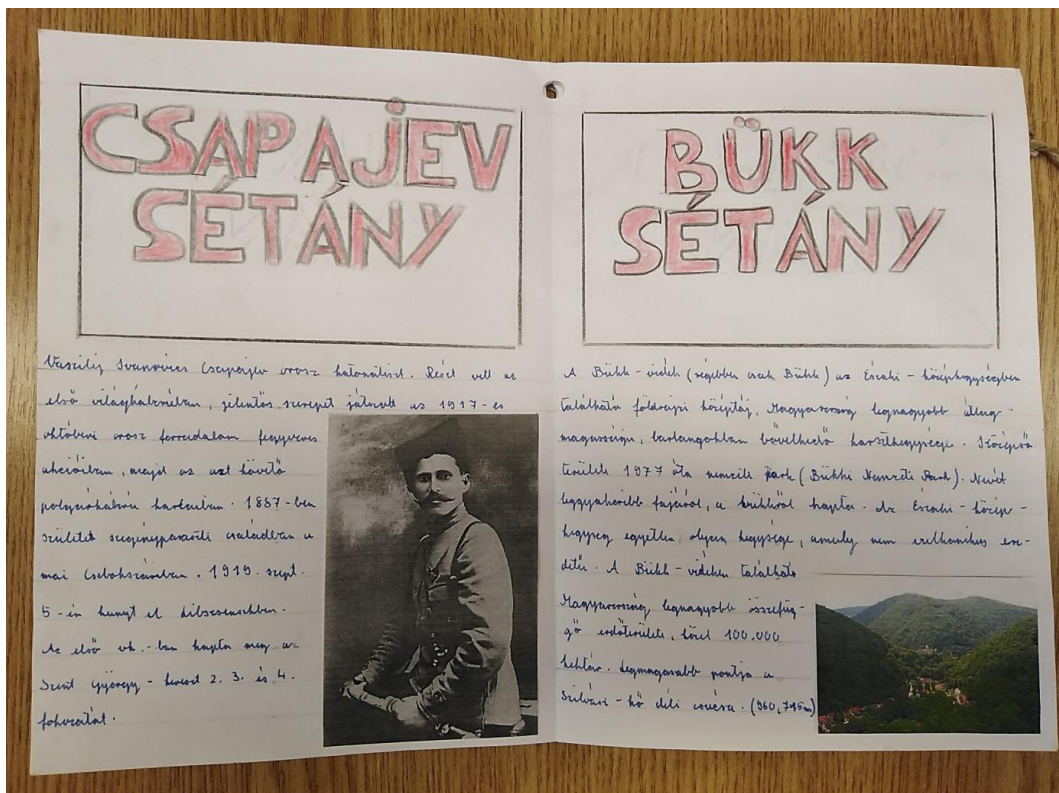 CSAPAJEV
SÉTÁNY
Vaszilij Ivanovics Csapajev orosz katonatiszt. Részt vett az
első világháborúban, jelentős szerepet játszott az 1917-es
októberi orosz forradalom fegyveres
akcióiban, majd az azt követő
polgárháború harcaiban. 1887-ben
született szegényparaszti családban a
mai Csebokszáriban. 1919. szept.
5-én hunyt el Lbiscsenszkben.
Az első vh.-ban kapta meg az
Szent György-kereszt 2. 3. és 4.
fokozatát.
BÜKK
SÉTÁNY
A Bükk-vidék (régebben csak Bükk) az Északi-középhegységben
található földrajzi középtáj, Magyarország legnagyobb átlag-
magasságú, barlangokban bővelkedő karszthegysége. Középső
területe 1977 óta nemzeti park (Bükki Nemzeti Park). Nevét
leggyakoribb fajáról, a bükkről kapta. Az Északi-közép-
hegység egyetlen olyan hegysége, amely nem vulkanikus ere-
detű. A Bükk-vidéken található
Magyarország legnagyobb összefüg-
gő erdőterülete, közel 100.000
hektár. Legmagasabb pontja a
Szilvási-kő déli csúcsa. (960,715m)